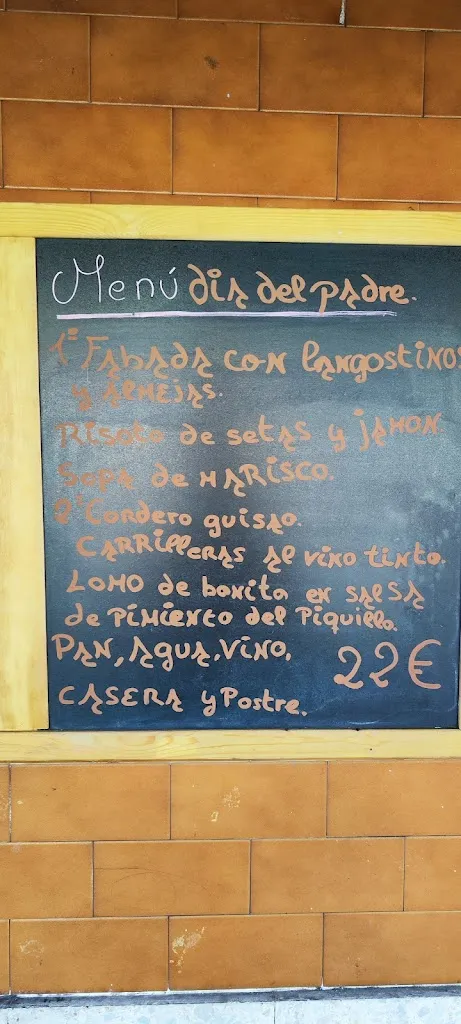 Menú dia del padre.
1º Fabada con langostinos
y almejas.
Risoto de setas y jamon.
Sopa de marisco.
2º Cordero guisao.
Carrilleras al vino tinto.
Lomo de bonito en salsa
de pimiento del piquillo.
Pan, agua, vino,
22€
casera y Postre.